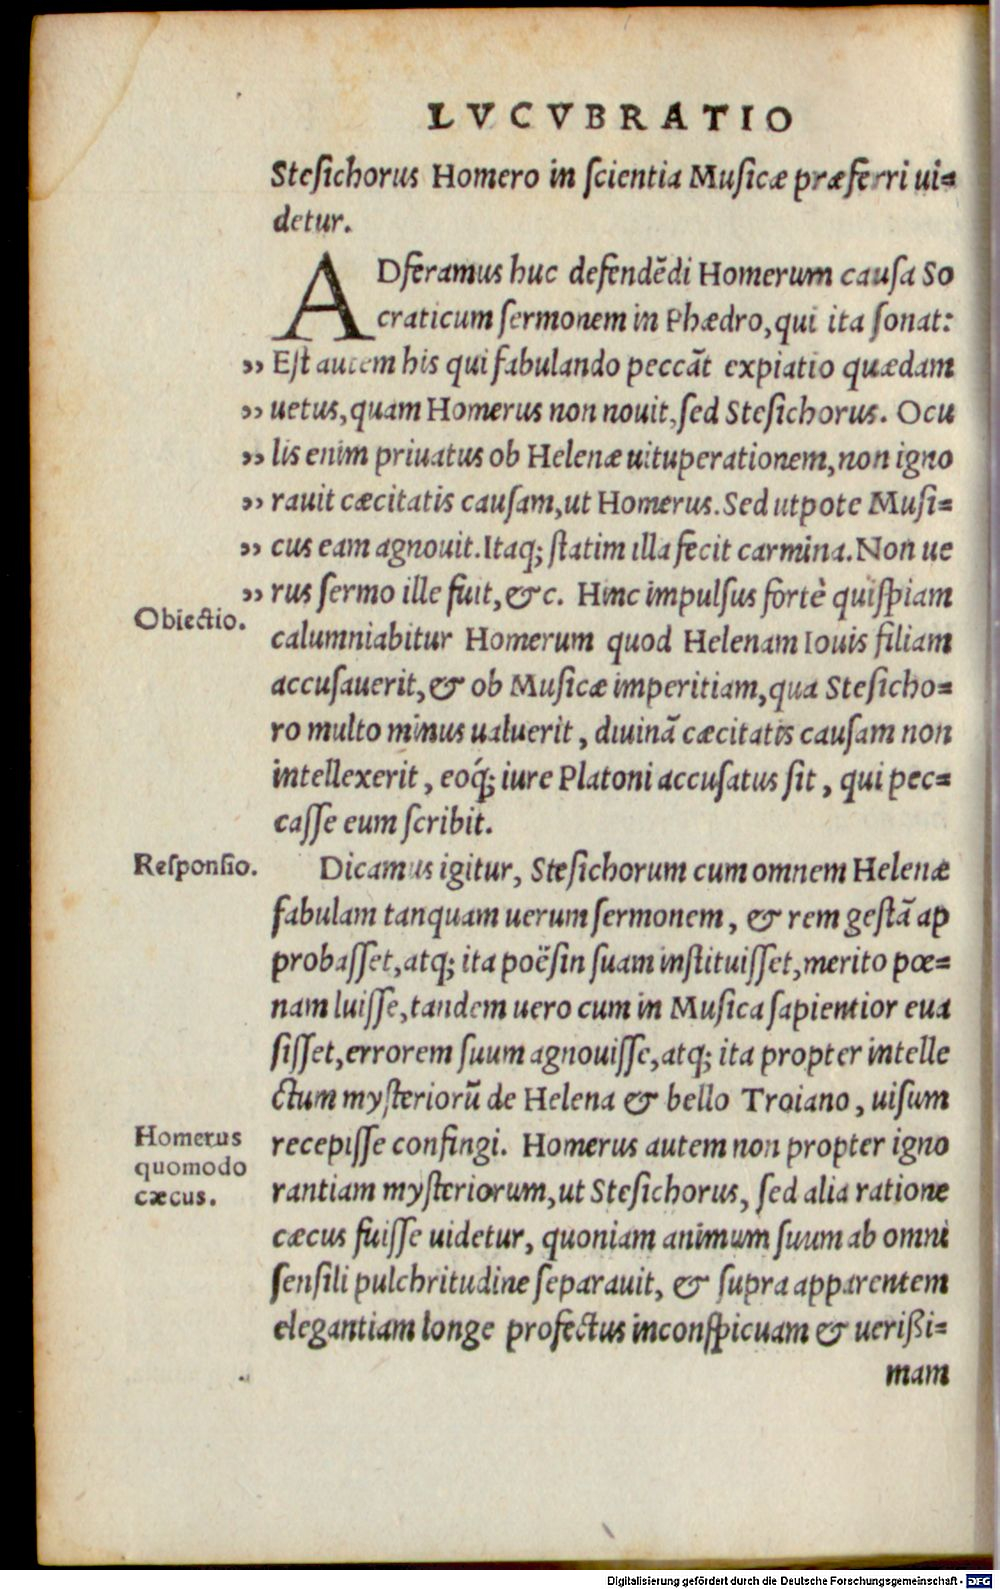 LVCVBRATIO
Stesichorus Homero in scientia Musicæ præferri ui=
detur.
ADferamus huc defendẽdi Homerum causa So
craticum sermonem in Phædro, qui ita sonat:
„ Est autem his qui fabulando peccãt expiatio quædam
„ uetus, quam Homerus non nouit, sed Stesichorus. Ocu
„ lis enim priuatus ob Helenæ uituperationem, non igno
„ rauit cæcitatis causam, ut Homerus. Sed utpote Musi=
„ cus eam agnouit. Itaq; statim illa fecit carmina. Non ue
„ rus sermo ille fuit, &c. Hinc impulsus fortè quispiam
Obiectio.
calumniabitur Homerum quod Helenam Iouis filiam
accusauerit, & ob Musicæ imperitiam, qua Stesicho=
ro multo minus ualuerit, diuinã cæcitatis causam non
intellexerit, eoq́; iure Platoni accusatus sit, qui pec=
casse eum scribit.
Responsio.
Dicamus igitur, Stesichorum cum omnem Helenæ
fabulam tanquam uerum sermonem, & rem gestã ap
probasset, atq; ita poësin suam instituisset, merito pœ=
nam luisse, tandem uero cum in Musica sapientior eua
sisset, errorem suum agnouisse, atq; ita propter intelle
ctum mysteriorũ de Helena & bello Troiano, uisum
Homerus
quomodo
cæcus.
recepisse confingi. Homerus autem non propter igno
rantiam mysteriorum, ut Stesichorus, sed alia ratione
cæcus fuisse uidetur, quoniam animum suum ab omni
sensili pulchritudine separauit, & supra apparentem
elegantiam longe profectus inconspicuam & uerißi=
mam
Digitalisierung gefördert durch die Deutsche Forschungsgemeinschaft - DFG